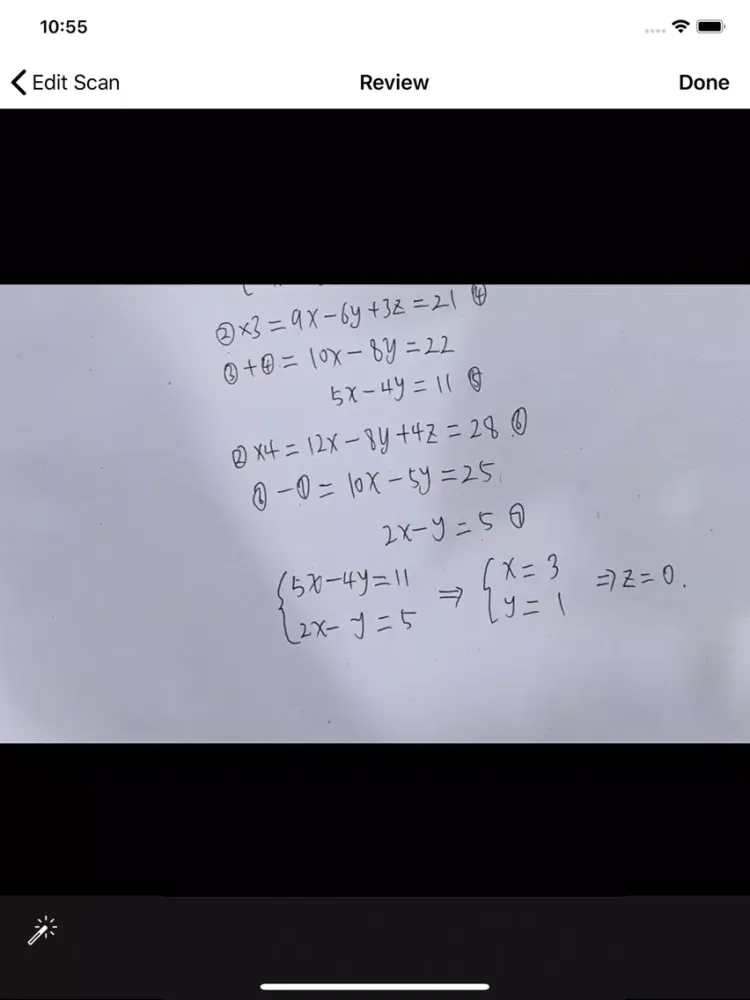 10:55
Edit Scan Review Done
②×3 = 9x-6y+3z=21 ④
③+④= 10x-8y=22
5x-4y=11 ⑤
②×4=12x-8y+4z=28 ⑥
⑥-①= 10x-5y=25
2x-y=5 ⑦
{5x-4y=11
{2x-y=5 ⇒ {x=3
{y=1 ⇒z=0.